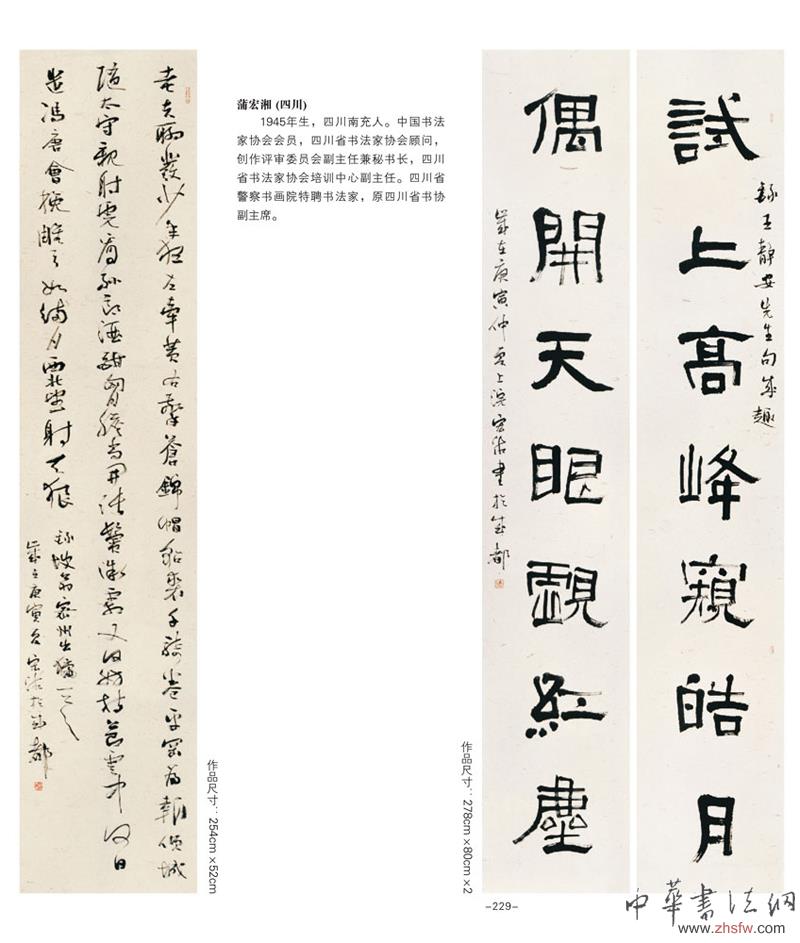 老夫聊發少年狂左牽黃右擎蒼錦帽貂裘千騎卷平岡為報傾城
隨太守親射虎看孫郎酒酣胸膽尚開張鬢微霜又何妨持節雲中何日
遣馮唐會挽雕弓如滿月西北望射天狼
錄坡翁密州出獵
歲在庚寅 宏湘於成都
作品尺寸：254cm×52cm
蒲宏湘 (四川)
1945年生，四川南充人。中国书法
家协会会员，四川省书法家协会顾问，
创作评审委员会副主任兼秘书长，四川
省书法家协会培训中心副主任。四川省
警察书画院特聘书法家，原四川省书协
副主席。
試上高峰窺皓月
錄王靜安先生句成趣
偶開天眼覷紅塵
歲在庚寅仲夏上浣宏湘書於成都
作品尺寸：278cm×80cm×2
-229-
中華書法網
www.zhsfw.com